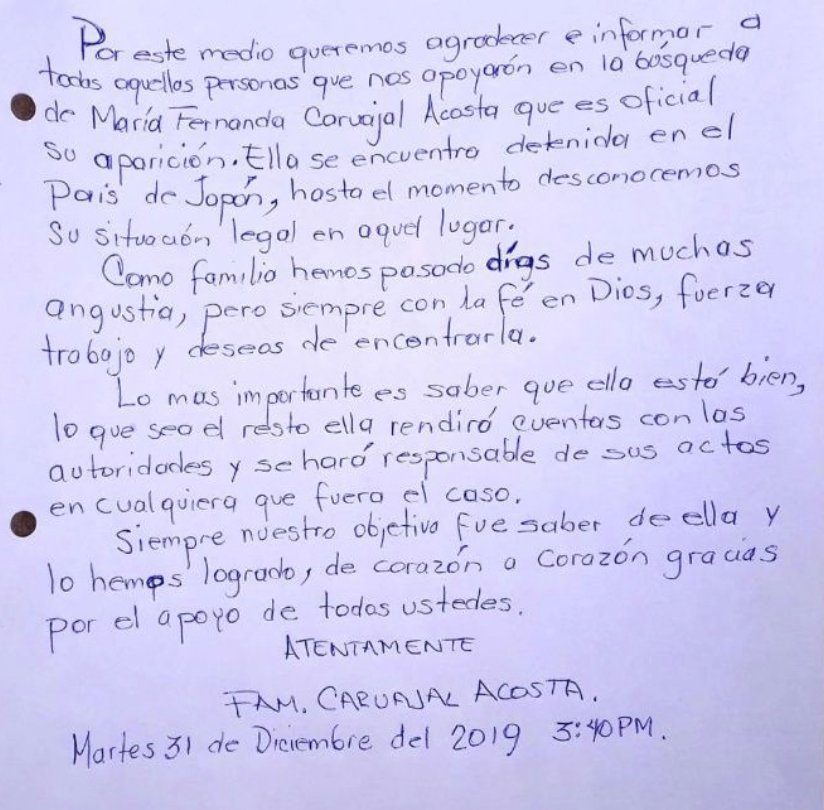 Por este medio queremos agradecer e informar a
todas aquellas personas que nos apoyarón en la búsqueda
de María Fernanda Carvajal Acosta que es oficial
su aparición. Ella se encuentra detenida en el
País de Japón, hasta el momento desconocemos
Su situación legal en aquel lugar.
Como familia hemos pasado días de muchas
angustia, pero siempre con la fé en Dios, fuerza
trabajo y deseos de encontrarla.
Lo mas importante es saber que ella está bien,
lo que sea el resto ella rendirá cuentas con las
autoridades y se hará responsable de sus actos
en cualquiera que fuera el caso.
Siempre nuestro objetivo fue saber de ella y
lo hemos logrado, de corazón a corazón gracias
por el apoyo de todos ustedes.
ATENTAMENTE
FAM. CARVAJAL ACOSTA.
Martes 31 de Diciembre del 2019 3:40PM.